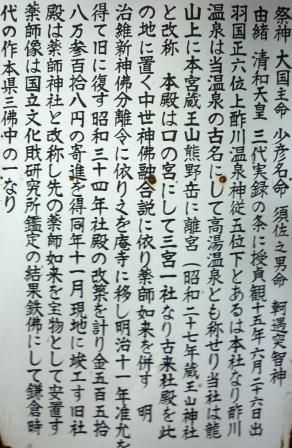 祭神 大国主命 少彦名命 須佐之男命 軻遇突智神
由緒 清和天皇 三代実録の条に授貞観十五年六月二十六日出
羽国正六位上酢川温泉神従五位下とあるは本社なり酢川
温泉は当温泉の古名にして高湯温泉とも称せり当社は龍
山上に本宮蔵王山熊野岳に離宮（昭和二十七年蔵王山神社
と改称 本殿は口の宮にして三宮一社なり古来社殿を此
の地に置く中世神佛融合説に依り薬師如来を併す 明
治維新神佛分離令に依り之を庵寺に移し明治十一年准允を
得て旧に復す昭和三十四年社殿の改築を計り金五百五拾
八万参百拾八円の寄進を得同年十一月現地に竣工す旧社
殿は薬師神社と改称し先の薬師如来を宝物として安置す
薬師像は国立文化財研究所鑑定の結果鉄佛にして鎌倉時
代の作本県三佛中の一なり